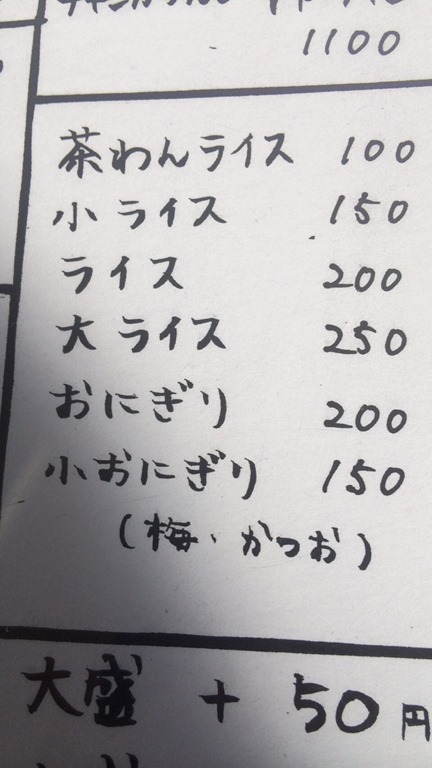 1100
茶わんライス 100
小ライス 150
ライス 200
大ライス 250
おにぎり 200
小おにぎり 150
(梅・かつお)
大盛 + 50円